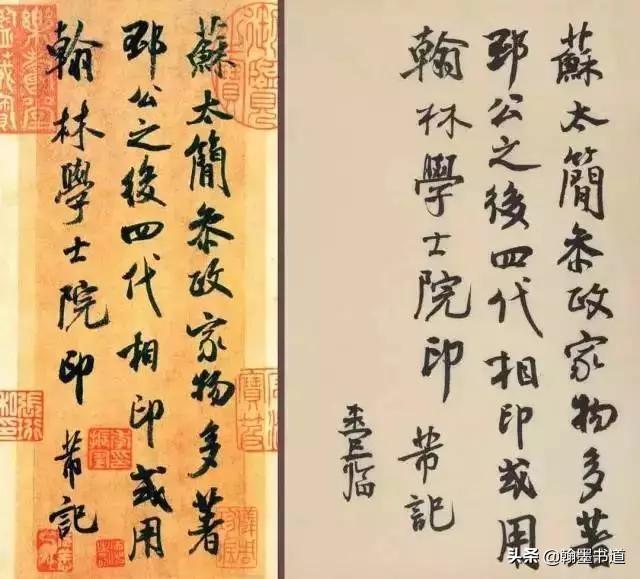 蘇太簡叅政家物多著
邳公之後四代相印或用
翰林學士院印 芾記
蘇太簡叅政家物多著
邳公之後四代相印或用
翰林學士院印 芾記
臨
头条 @翰墨书道